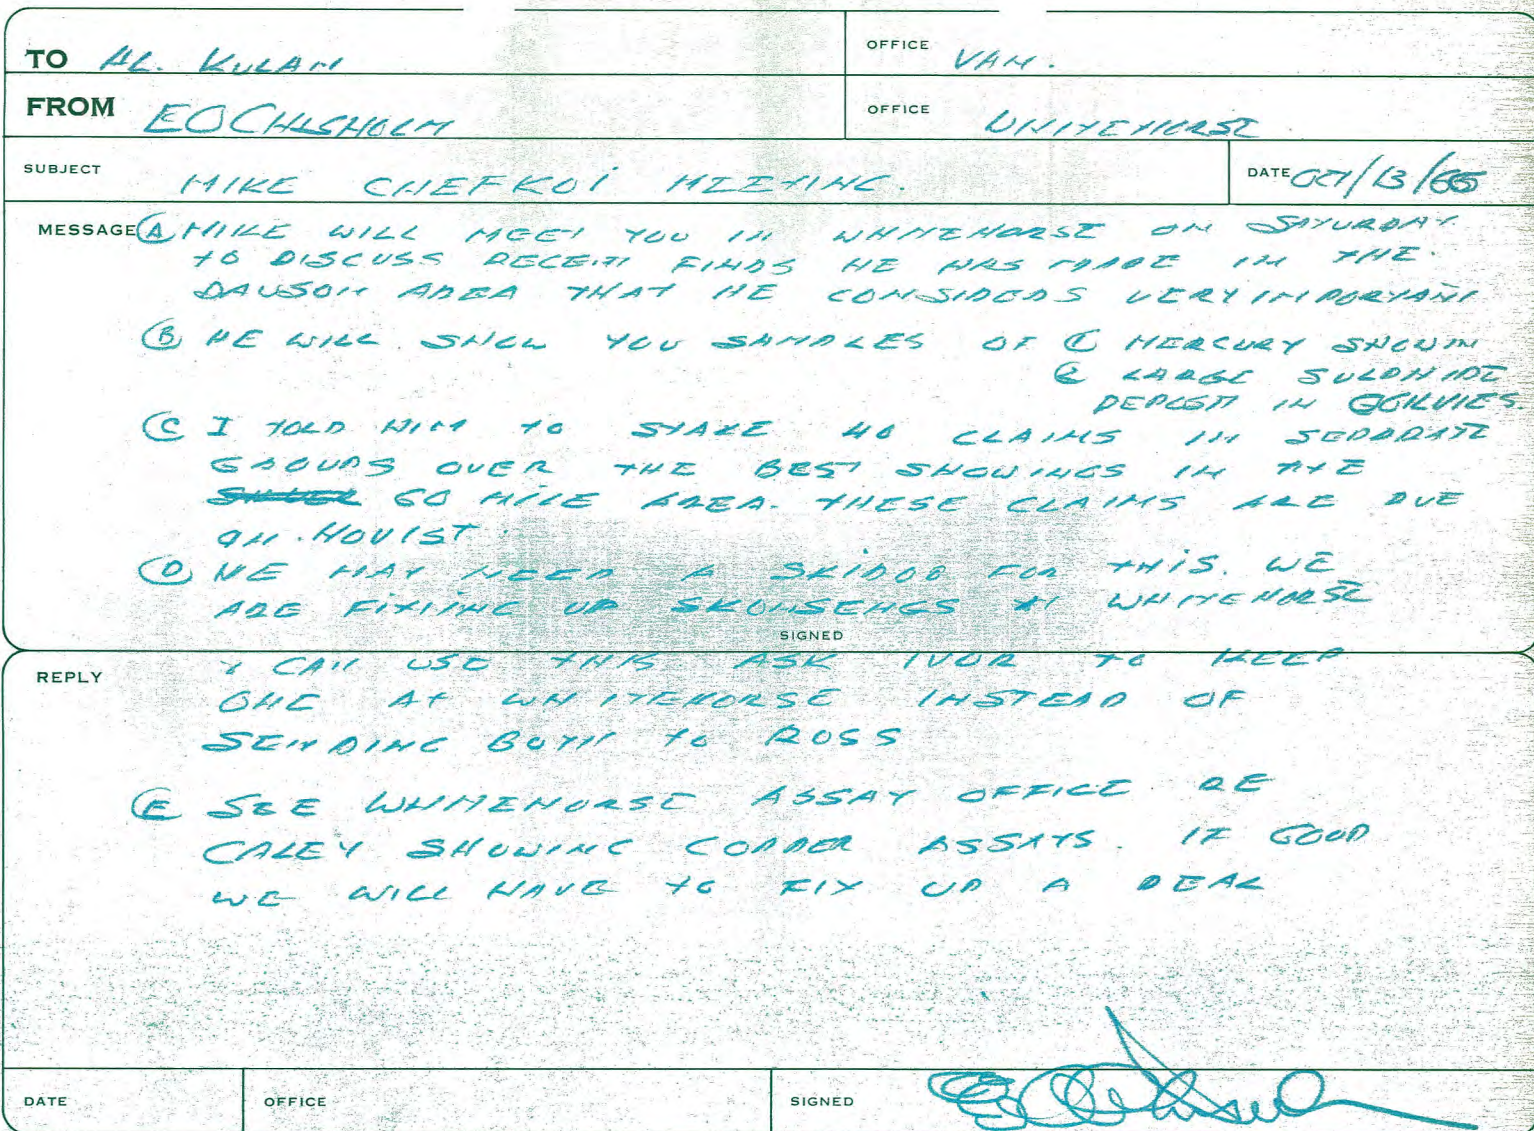 TO AL. KULAN OFFICE VAN.
FROM EOCHISHOLM OFFICE WHITEHORSE
SUBJECT MIKE CHEFKOI MEETING. DATE OCT/13/66
MESSAGE (A) MIKE WILL MEET YOU IN WHITEHORSE ON SATURDAY.
TO DISCUSS RECENT FINDS HE HAS MADE IN THE.
DAWSON AREA THAT HE CONSIDERS VERY IMPORTANT
(B) HE WILL SHOW YOU SAMPLES OF (1) MERCURY SHOWIN
(2) LARGE SULPHIDE
DEPOSIT IN OGILVIES.
(C) I TOLD HIM TO STAKE 40 CLAIMS IN SEPARATE
GROUPS OVER THE BEST SHOWINGS IN THE
60 MILE AREA. THESE CLAIMS ARE DUE
ON. NOV 1ST.
(D) WE MAY NEED A SKIDOO FOR THIS. WE
ARE FIXING UP AT WHITEHORSE
SIGNED
REPLY
& CAN USE THIS ASK IVOR TO KEEP
ONE AT WHITEHORSE INSTEAD OF
SENDING BOTH TO ROSS
(E) SEE WHITEHORSE ASSAY OFFICE RE
CALEY SHOWING COPPER ASSAYS. IF GOOD
WE WILL HAVE TO FIX UP A DEAL
DATE OFFICE SIGNED